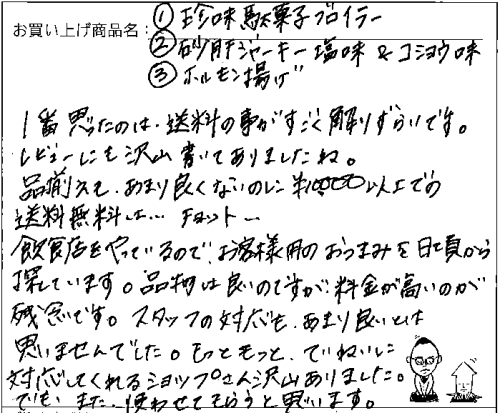 お買い上げ商品名：①珍味駄菓子ブロイラー
②砂肝ジャーキー塩味 & コショウ味
③ホルモン揚げ
1番思ったのは、送料の事がすごく解りずらいです。
レビューにも沢山書いてありましたね。
品揃えも、あまり良くないのに¥10000以上での
送料無料は… チョット…
飲食店をやっているので、お客様用のおつまみを日頃から
探しています。品物は良いのですが、料金が高いのが
残念です。スタッフの対応も、あまり良いとは
思いませんでした。もっともっと、ていねいに
対応してくれるショップさん沢山ありました。
でも、また、使わせてもらうと思います。